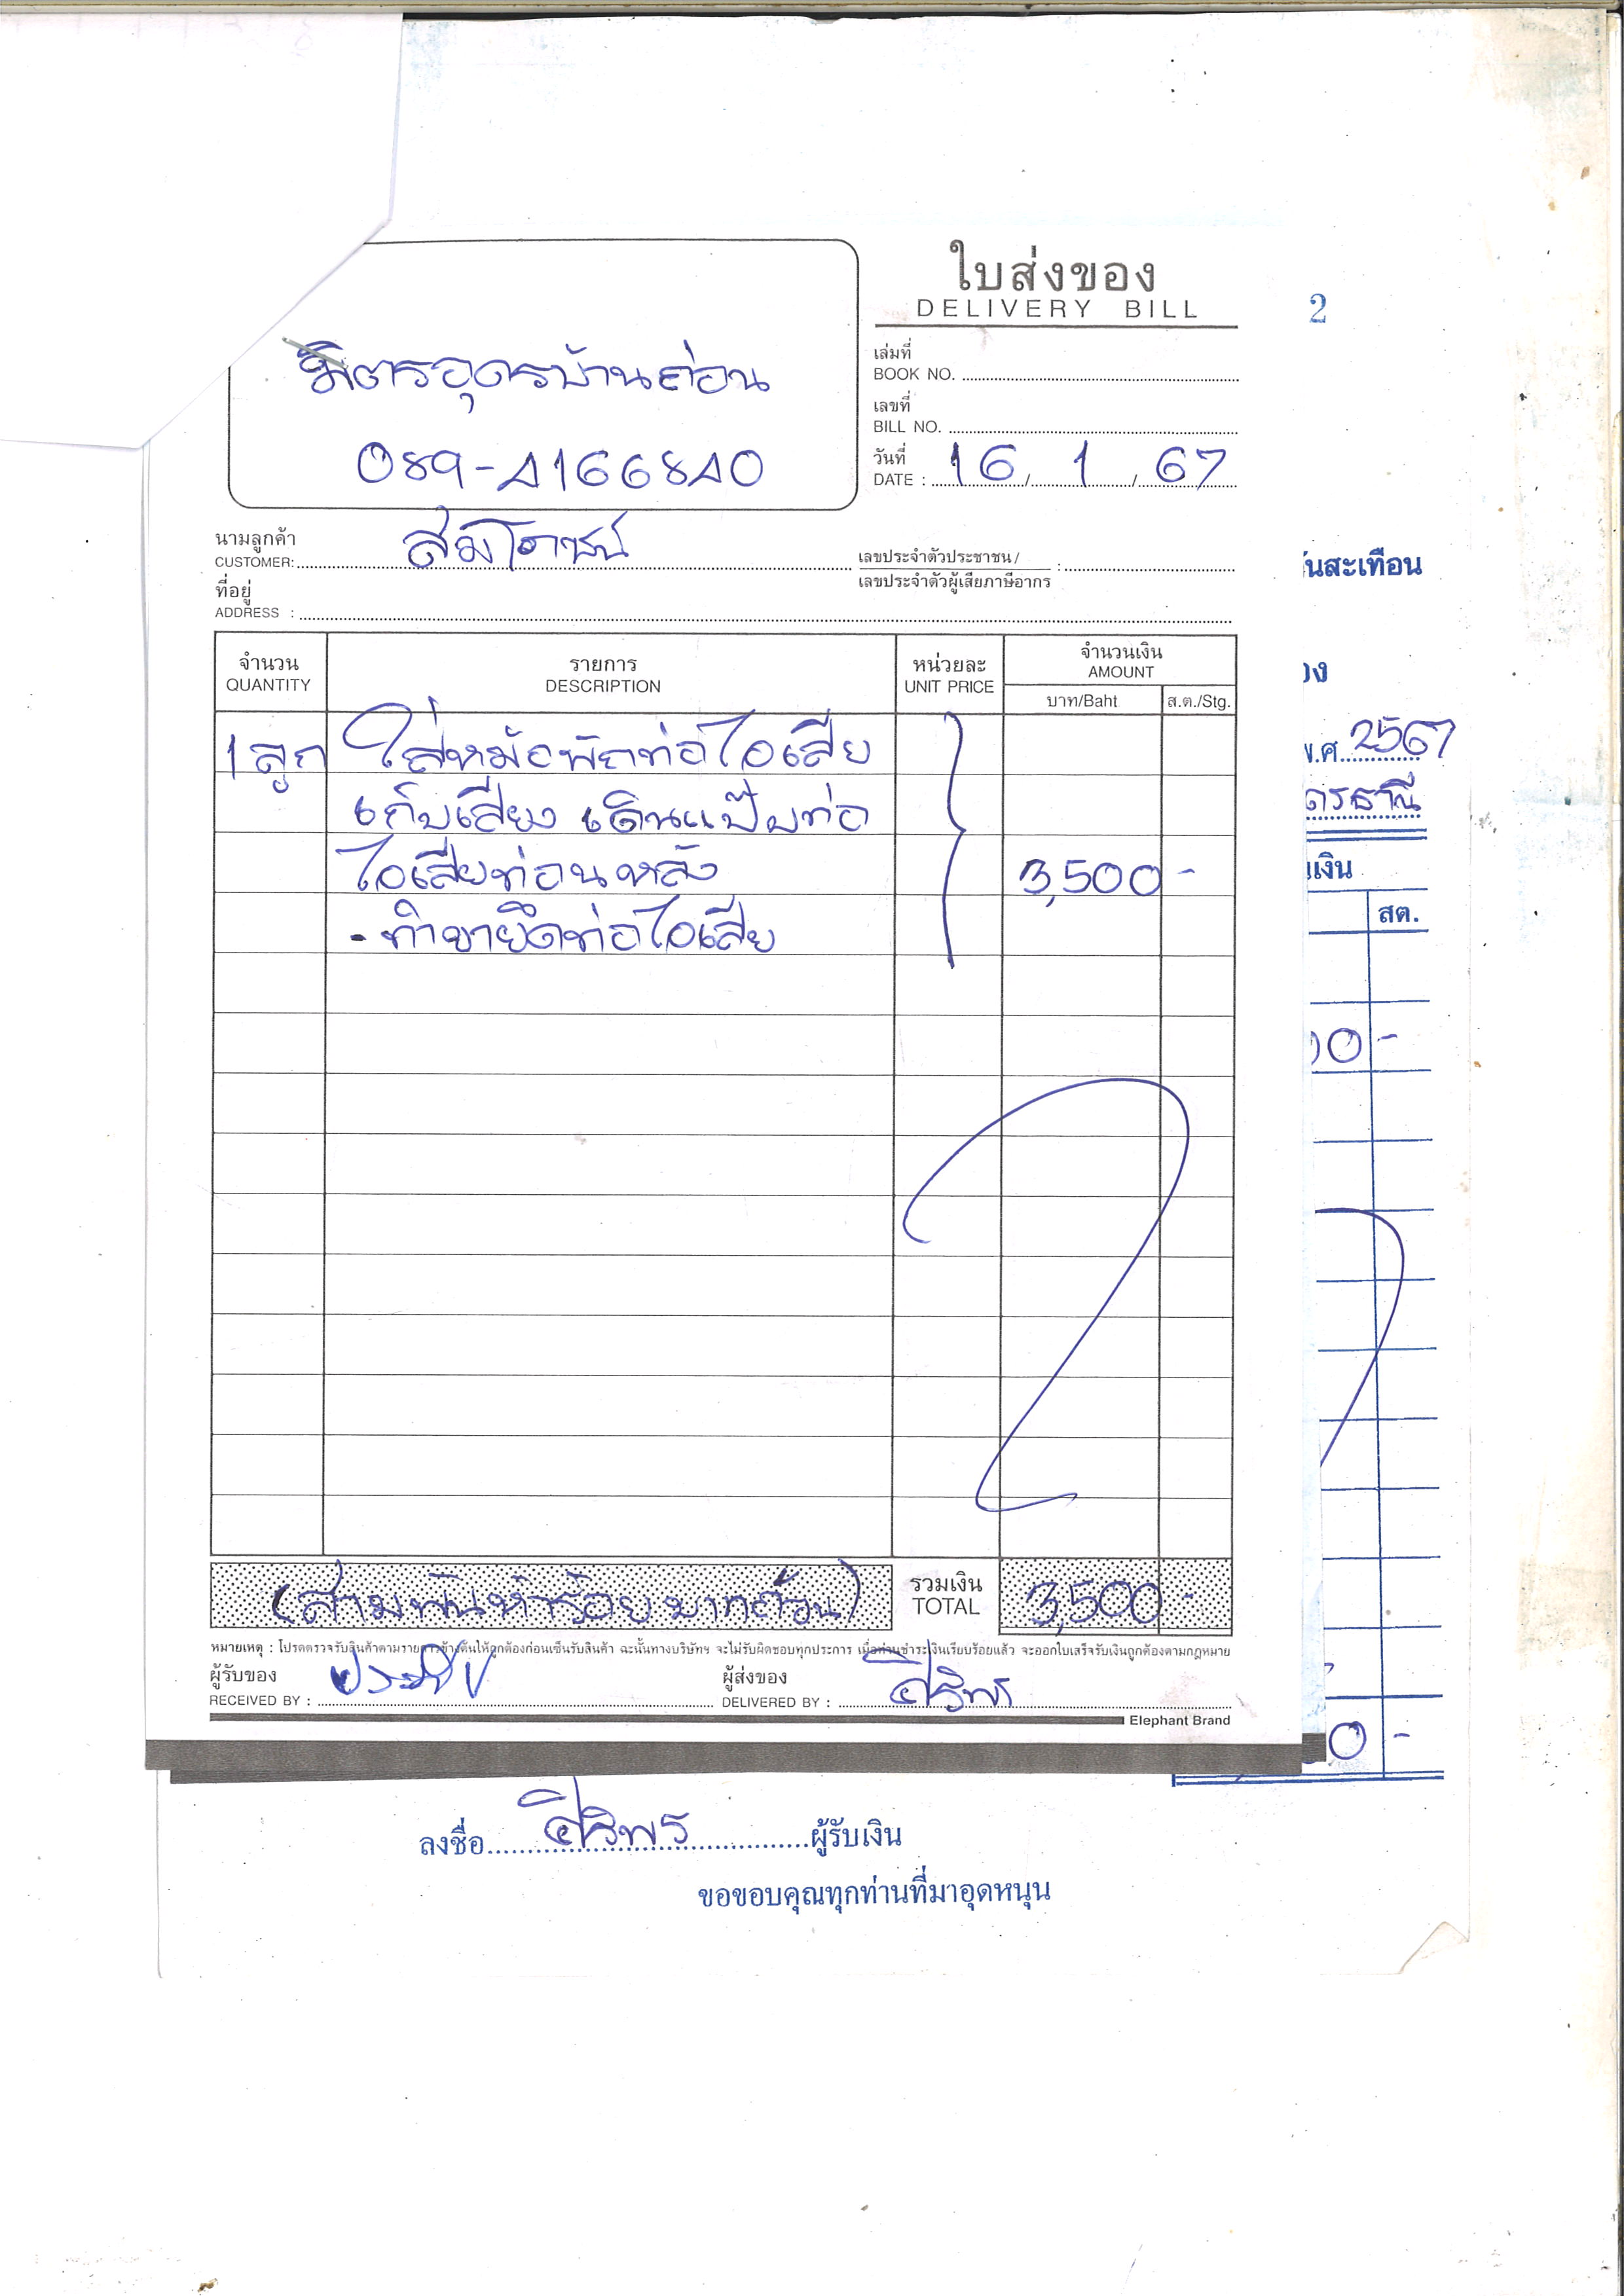 ใบส่งของ
DELIVERY BILL
2
มิตรอุดรบ้านถ่อน
089-4166840
เล่มที่
BOOK NO.
เลขที่
BILL NO.
วันที่
DATE : 16 / 1 / 67
นามลูกค้า
CUSTOMER: สมโภชน์
เลขประจำตัวประชาชน /
เลขประจำตัวผู้เสียภาษีอากร :
ที่อยู่
ADDRESS :
ันสะเทือน
จำนวน รายการ หน่วยละ จำนวนเงิน
QUANTITY DESCRIPTION UNIT PRICE AMOUNT
บาท/Baht ส.ต./Stg.
พ.ศ. 2567
1 ลูก ใส่หม้อพักท่อไอเสีย
เก็บเสียง เดินแป๊บท่อ
ดรธานี
ไอเสียท่อนหลัง 3,500 -
เงิน
สต.
- ทำขายึดท่อไอเสีย
0 -
(สามพันห้าร้อยบาทถ้วน) รวมเงิน
TOTAL 3,500 -
หมายเหตุ : โปรดตรวจรับสินค้าตามรายการข้างต้นให้ถูกต้องก่อนเซ็นรับสินค้า ฉะนั้นทางบริษัทฯ จะไม่รับผิดชอบทุกประการ เมื่อท่านชำระเงินเรียบร้อยแล้ว จะออกใบเสร็จรับเงินถูกต้องตามกฎหมาย
ผู้รับของ
RECEIVED BY :
ผู้ส่งของ
DELIVERED BY : ศิริพร
Elephant Brand
0 -
ลงชื่อ ศิริพร ผู้รับเงิน
ขอขอบคุณทุกท่านที่มาอุดหนุน